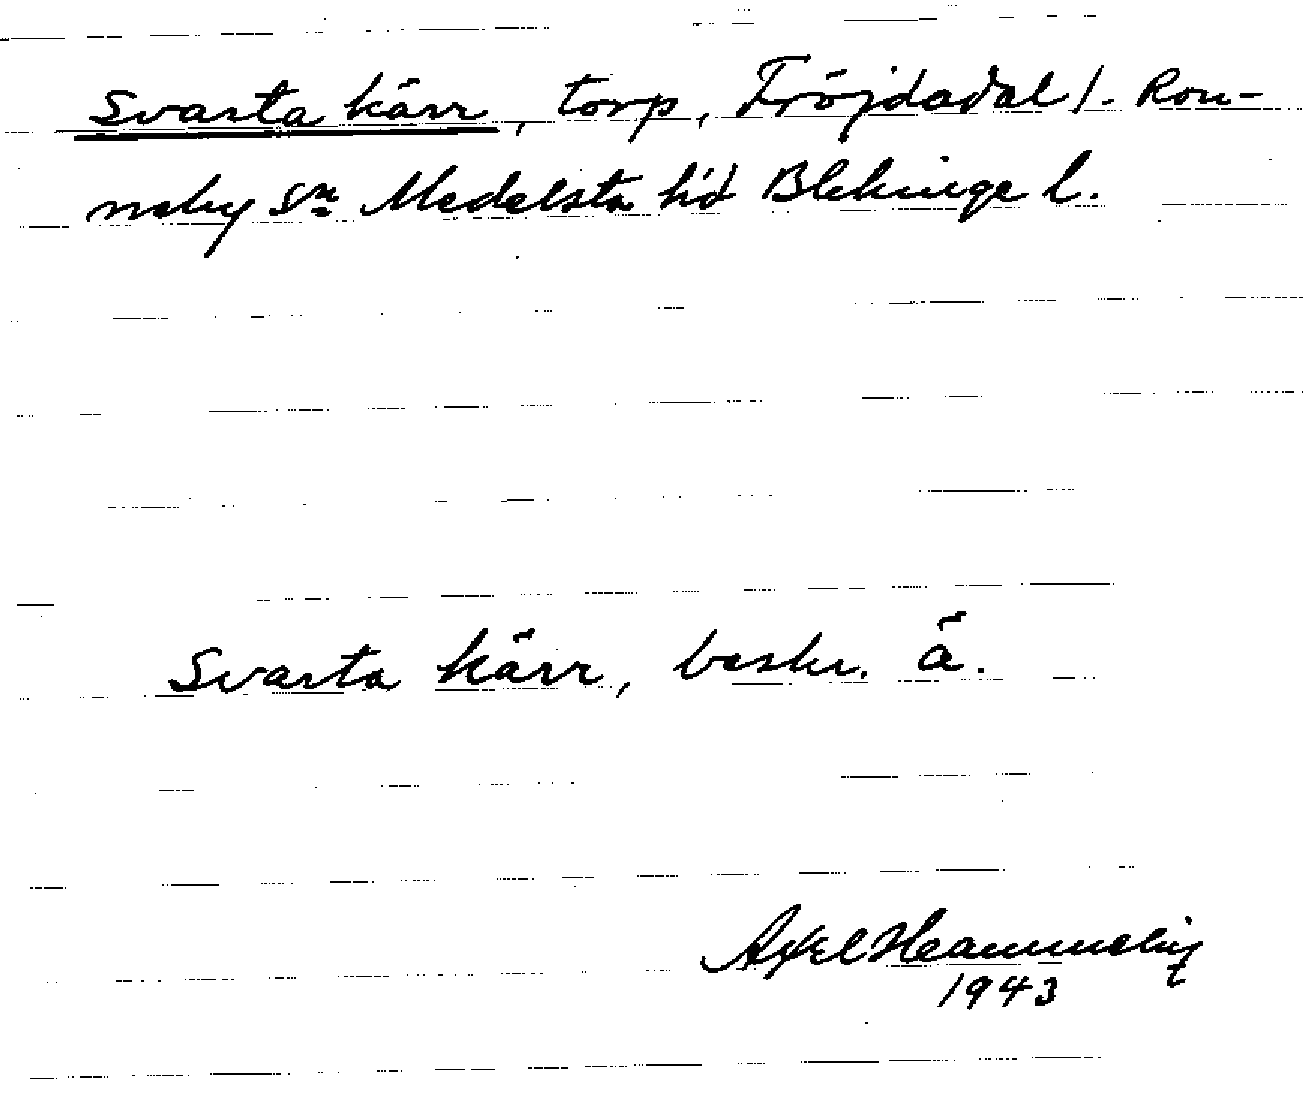 Svarta kärr, torp, Fröjdadal /. Ron-
neby sn Medelsta hd Blekinge l.
Svarta kärr, beskr. å.
Axel
1943